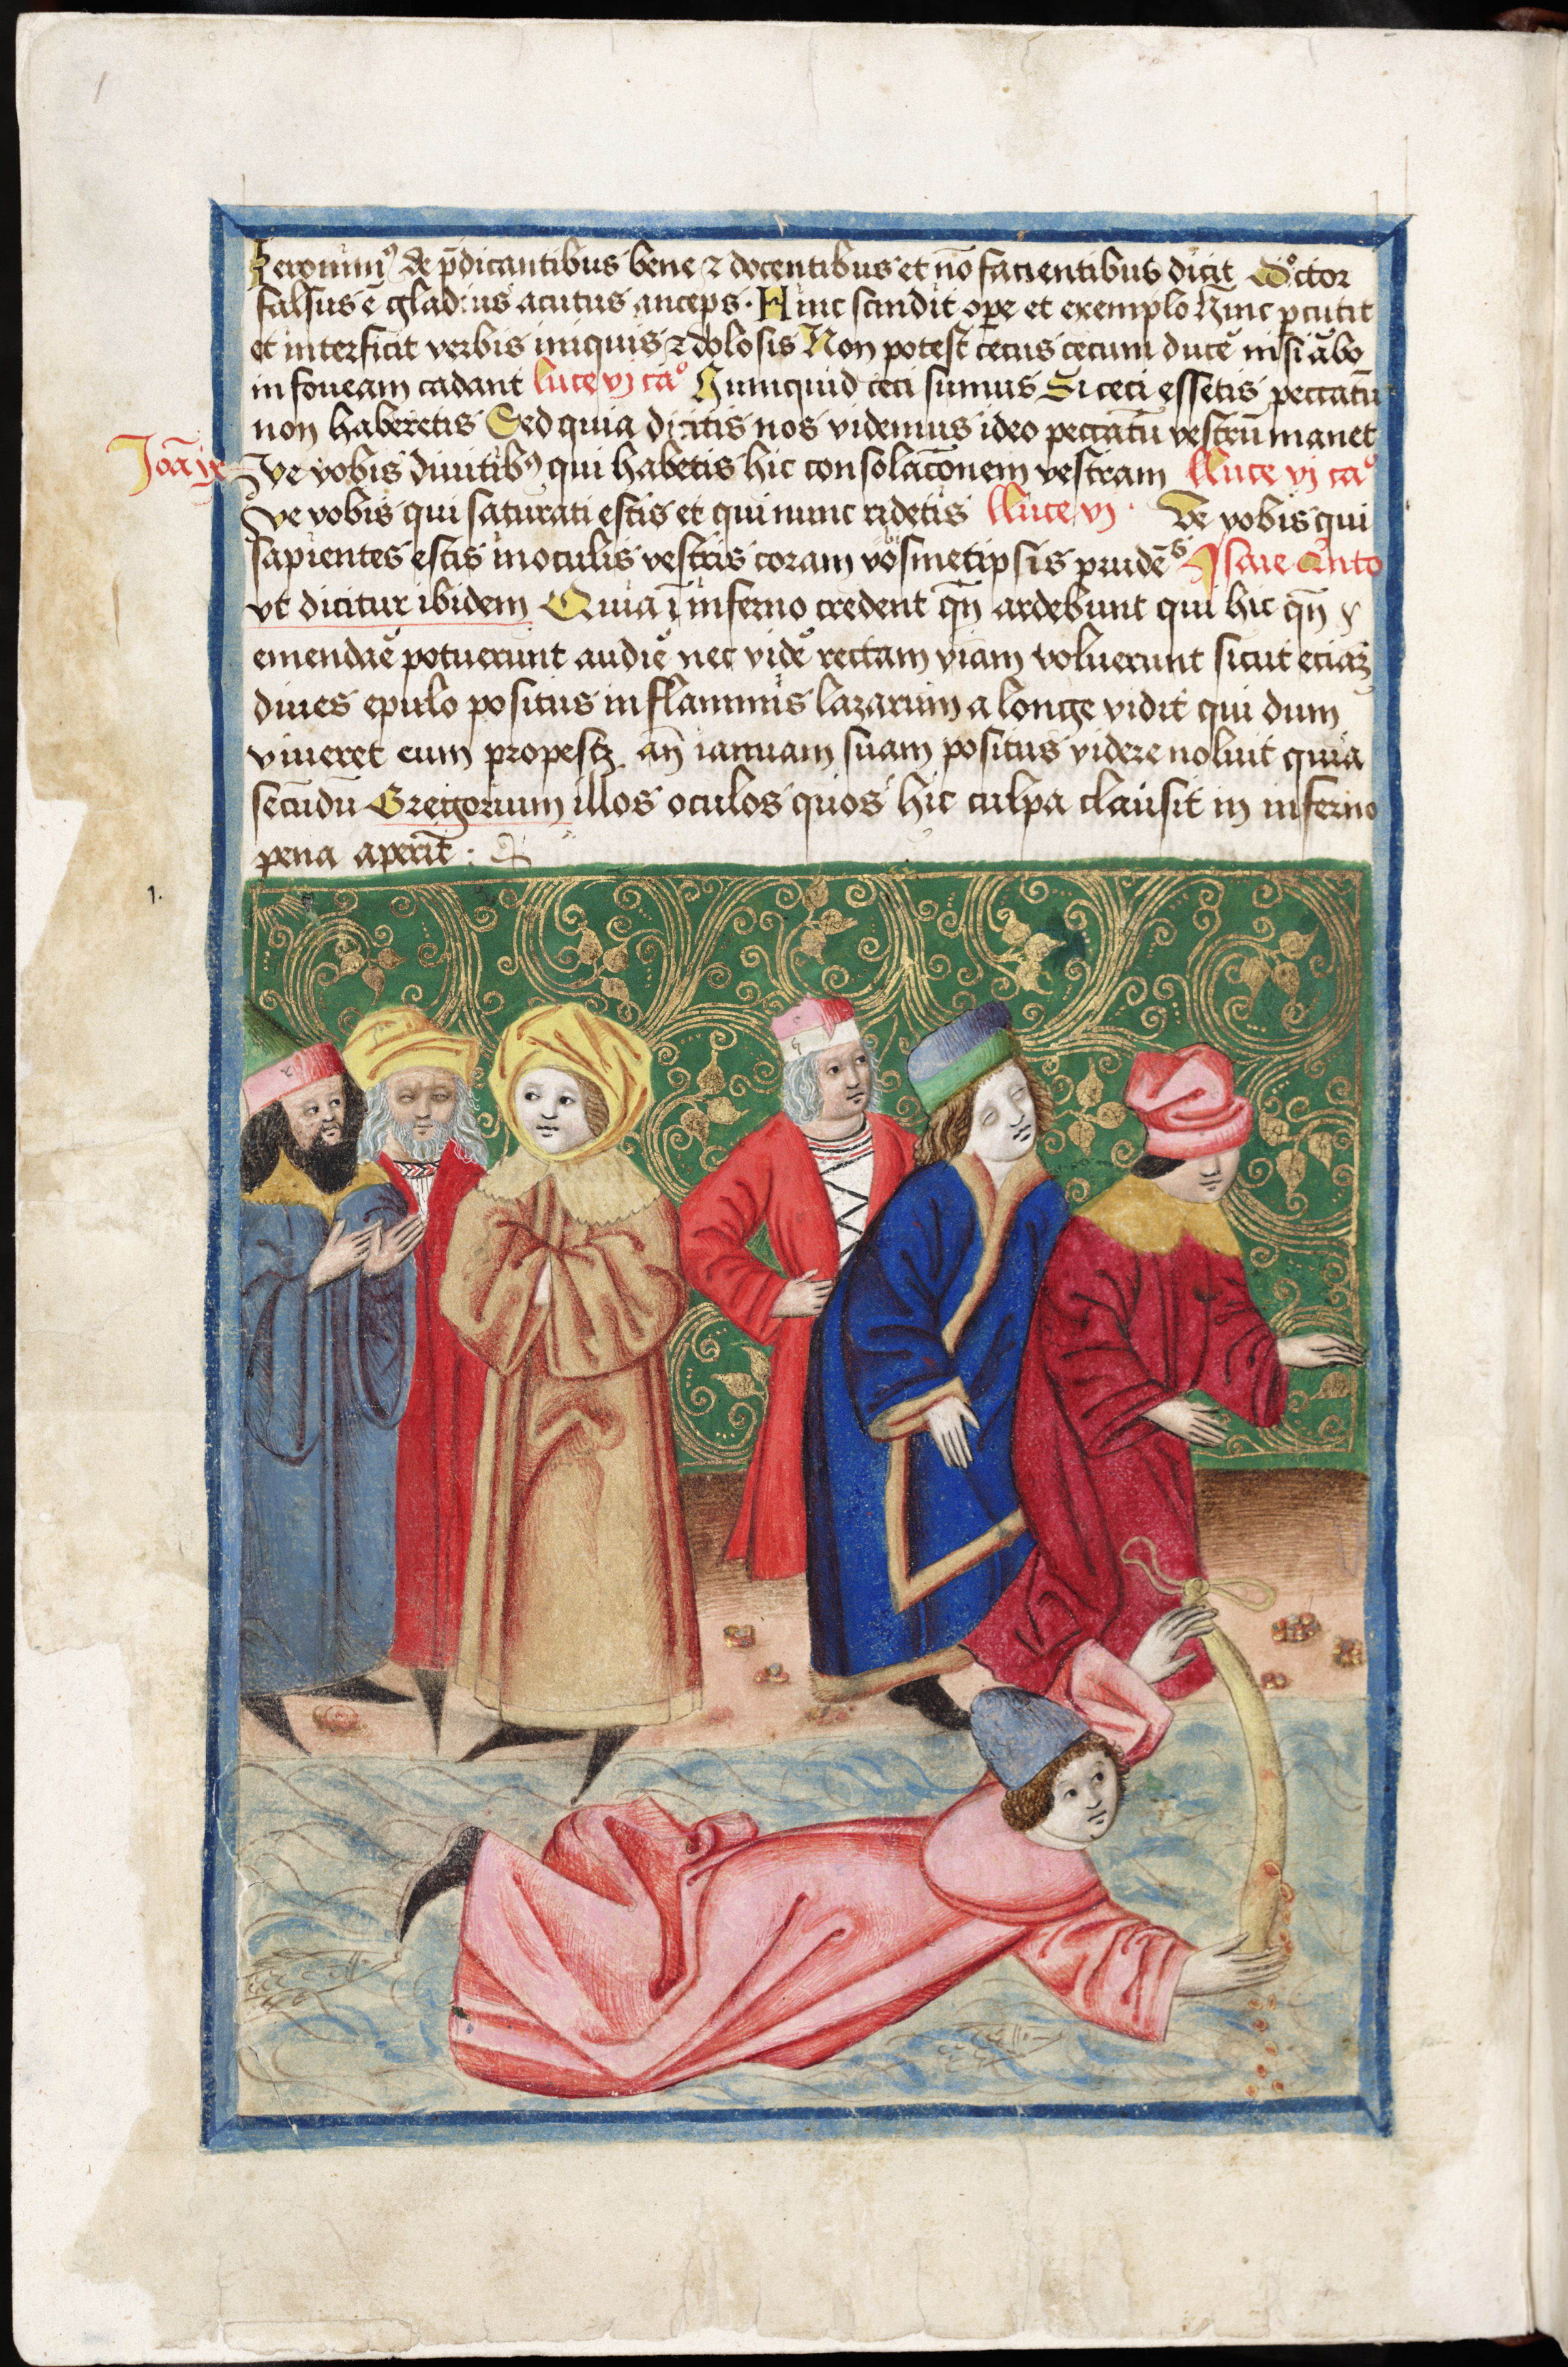 Jeronim⁹ de p̄dicantibus bene ⁊ docentibus et nō facientibus dicit Doctor
falsus ē gladius acutus anceps · Hinc scindit oꝑe et exemplo Hinc ꝑcutit
et interficit verbis iniquis ⁊ dolosis Non potest cecus cecum ducē nisi ābo
in foveam cadant luce vj caº Numquid ceci sumus Si ceci essetis peccatū
non haberetis Sed quia dicitis nos videmus ideo peccatū vestrū manet
Joā ix
Ve vobis divitib⁹ qui habetis hic consolacōnem vestram Luce vj caº
Ve vobis qui saturati estis et qui nunc ridetis Luce vj · Ve vobis qui
sapientes estis in oculis vestris coram vobismetipsis prudē⁵ Isaie Qnto
vt dicitur ibidem Quia ī inferno credent qn̄ ardebunt qui hic qn̄ s̄
emendaē potuerunt audiē nec vidē rectam viam voluerunt sicut eciaꝫ
dives epulo positus in flammis lazarum a longe vidit qui dum
viveret eum prope an̄ ianuam suam positus videre noluit quia
secūdū Gregorium illos oculos quos hic culpa clausit in inferno
pena aperit :
1.